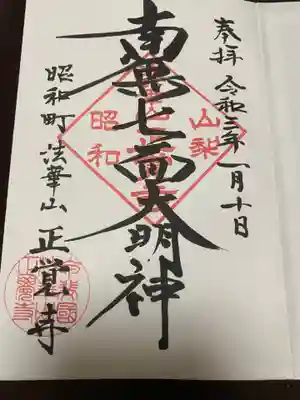 奉拝 令和二年一月十日
南無七面大明神
山梨
昭和
昭和町 法華山 正覚寺